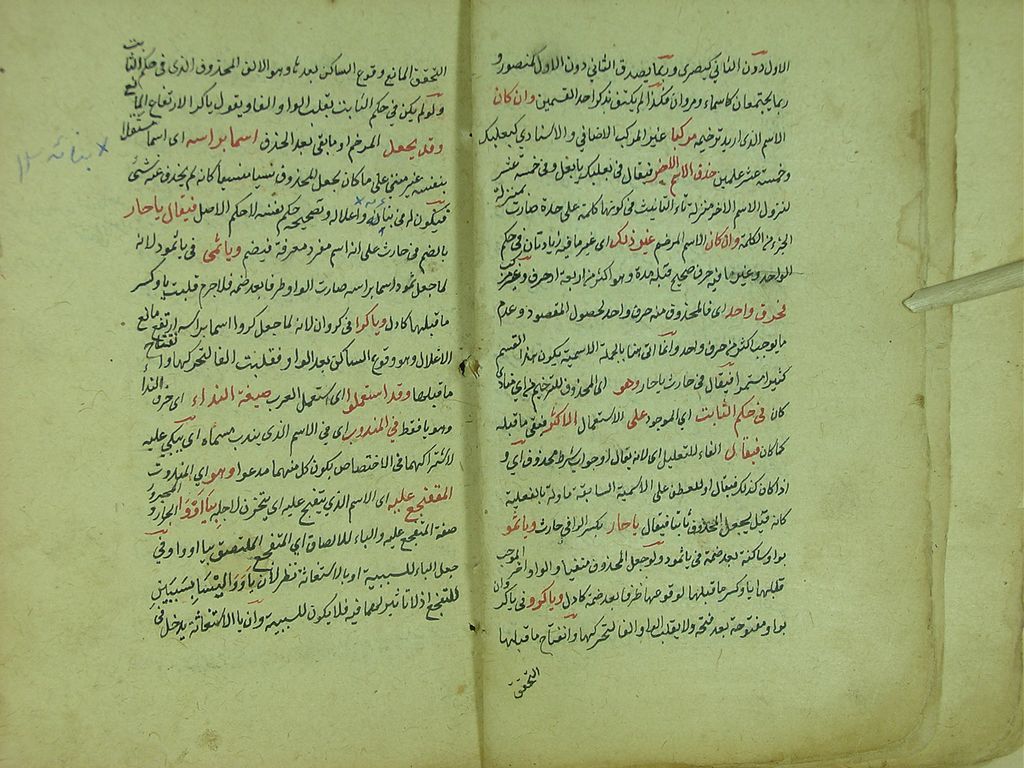 الاول دون الثاني كبصرى وربما يصدق الثاني دون الاول كمنصور و
ربما يجتمعان كاسماء ومروان فلذا لم يكتف بذكر احد القسمين وان كان
الاسم الذى اريد ترخيمه مركبا غير المركب الاضافي والاسنادي كبعلبك
وخمسة عشر علمين حذف الاسم الاخير فيقال فى بعلبك يا بعل وفى خمسة عشر
لنزول الاسم الاخر منزلة تاء التانيث فى كونها كلمة على حدة صارت بمنزلة
الجزء من الكلمة والا كان الاسم المرخم غير ذلك اى غير ما فيه زيادتان فى حكم
الواحد وغير ما فيه حرف صحيح قبله مدة وهو اكثر من اربعة احرف وغير مركب
فحرف واحد اى فالمحذوف منه حرف واحد لحصول المقصود وعدم
ما يوجب كثر من حرف واحد وانما اتى هنا بالجملة الاسمية يكون هذا القسم
كثيرا مستمرا فيقال فى حارث يا حار وهو اى المحذوف للترخيم من اى منادى
كان فى حكم الثابت اى الموجود على الاستعمال الاكثر فبقى ما قبله
كما كان فيقال الفاء للتعليل اى لانه يقال او جواب شرط محذوف اى و
اذا كان كذلك فيقال او للعطف على الاسمية السابقة ماولة بالفعلية
كانه قيل يجعل المحذوف ثابتا فيقال يا حار بكسر الراء فى حارث ويا ثمو
بواو ساكنة بعد ضمة فى يا ثمود ولو جعل المحذوف منسيا والواو اخر لوجب
قلبها ياء وكسر ما قبلها لوقوعها طرفا بعد ضمة كادل ويا كرو فى يا كروان
بواو مفتوحة بعد فتحة ولا يقلب الواو الفا لتحركها وانفتاح ما قبلها
التحقق
التحقق المانع وقوع الساكن بعدها وهو الالف المحذوف الذى فى حكم الثابت
ولو لم يكن فى حكم الثابت يقلب الواو الفا ويقول يا كرا لارتفاع المانع
وقد يجعل المرخم او ما بقى بعد الحذف اسما براسه اى اسما مستقلا
بنفسه غير مبنى على ما كان يجعل المحذوف نسيا منسيا كانه لم يحذف عنه شئ
فيكون له فى بنائه واعلاله وتصحيحه حكم بنفسه لا حكم الاصل فيقال يا حار
بالضم فى حارث على انه اسم مفرد معرفة فيضم ويا ثمى فى يا ثمود لانه
لما جعل ثمو اسما براسه صارت الواو طرفا بعد ضمة فلا جرم قلبت ياء وكسر
ما قبلها كادل ويا كرا فى كروان لانه لما جعل كرو اسما براسه ارتفع مانع
الاعلال وهو وقوع الساكن بعد الواو فقلبت الفا لتحركها وانفتاح
ما قبلها وقد استعملوا اى استعمل العرب صيغة النداء اى حرف النداء
وهو يا فقط فى المندوب اى فى الاسم الذى يندب مسماه اى يبكى عليه
لاشتراكهما فى الاختصاص بكون كل منهما مدعوا وهو اى المندوب
المتفجع عليه اى الاسم الذى يتفجع عليه اى يتحزن لاجله بيا او وا الجار والمجرور
صفة المتفجع عليه والباء للالصاق اى المتفجع الملتصق بيا او وا وفى
جعل الباء للسببية او بالاستعانة نظر لان يا و وا ليسا بسببين
للتفجع اذ لا تاثير لهما فيه فلا يكون للسببية وان باء الاستعانة يدخل فى
× بنائه ١٢